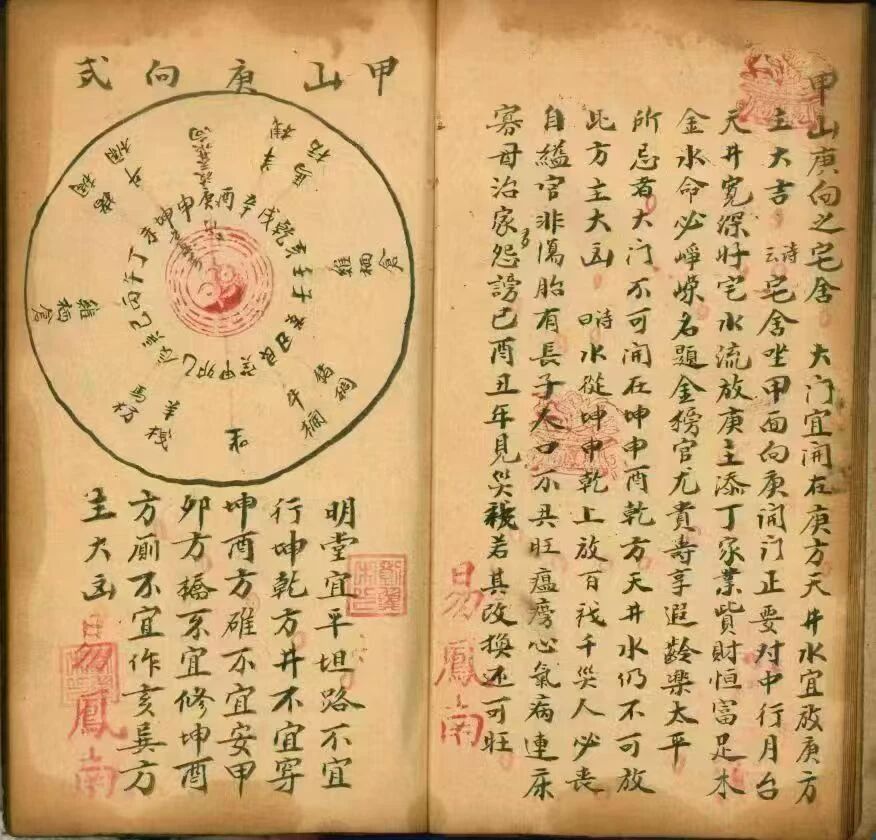 甲山庚向之宅舍 大门宜開在庚方天井水宜放庚方
主大吉 詩云 宅舍坐甲面向庚開门正要对中行月台
天井寬深好宅水流放庚主添丁家業貲財恒富足木
金水命必崢嶸名題金榜官尤貴壽享遐齡樂太平
所忌者大门不可開在坤申酉乾方天井水仍不可放
此方主大凶 詩曰 水從坤申乾上放百禍千災人必喪
自縊官非傷胎有長子人口不兴旺瘟癀心氣病連床
寡母治家多怨謗巳酉丑年見災殃若其改換还可旺
易鳳南
甲山庚向式
庚酉辛戌乾亥壬子癸丑艮寅甲卯乙辰巽巳丙午丁未坤申
雞栖倉
猪欄
牛欄
羊棧
馬枋
雞栖倉
明堂宜平坦路不宜
行坤乾方井不宜穿
坤酉方碓不宜安甲
卯方橋不宜修坤酉
方厕不宜作亥巽方
主大凶
易鳳南